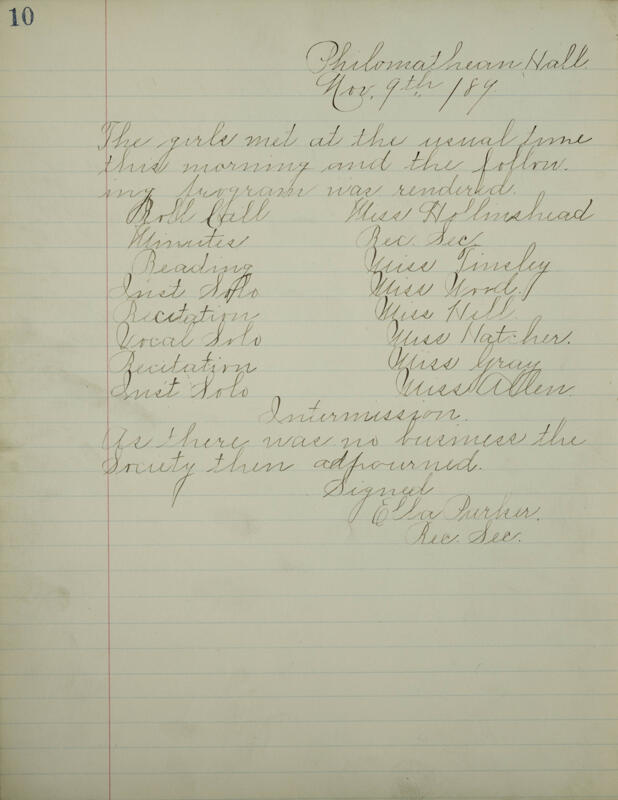 10
Philomathean Hall.
Nov. 9th /89.
The girls met at the usual time
this morning and the follow-
ing program was rendered.
Roll Call Miss Hollinshead
Minutes Rec. Sec.
Reading Miss Tinsley
Inst Solo Miss Wood.
Recitation Miss Hill.
Vocal Solo Miss Hatcher.
Recitation Miss Gray
Inst Solo Miss Allen.
Intermission.
As there was no business the
Society then adjourned.
Signed
Ella Parker.
Rec. Sec.